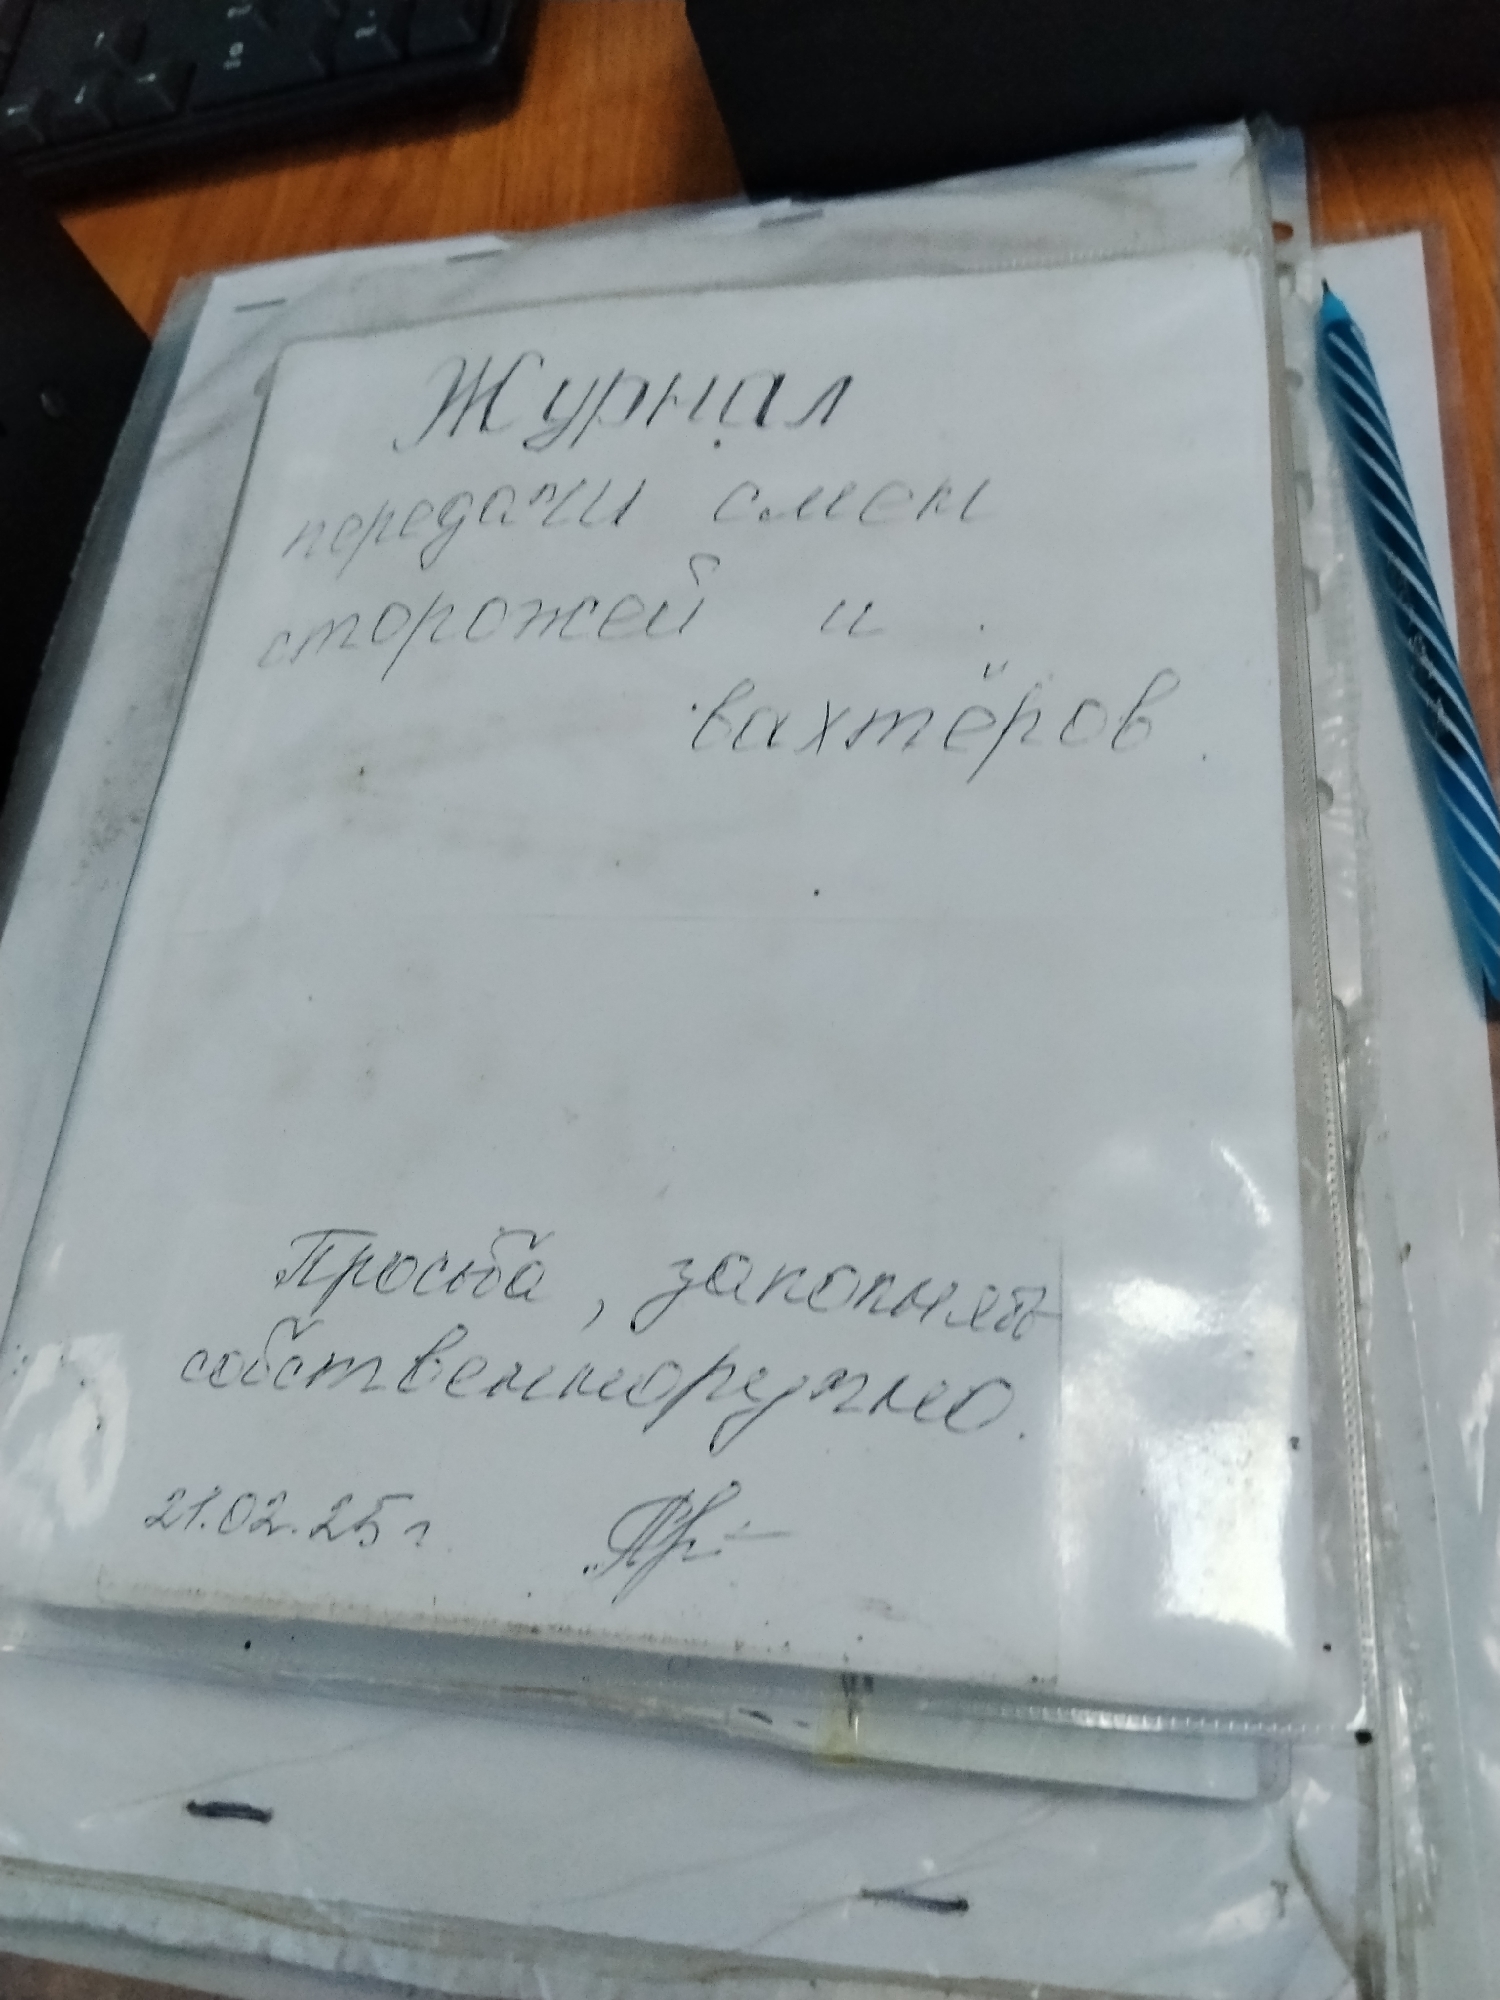 Журнал
передачи смен
сторожей и
вахтёров.
Просьба, заполнять
собственноручно.
21.02.25 г.